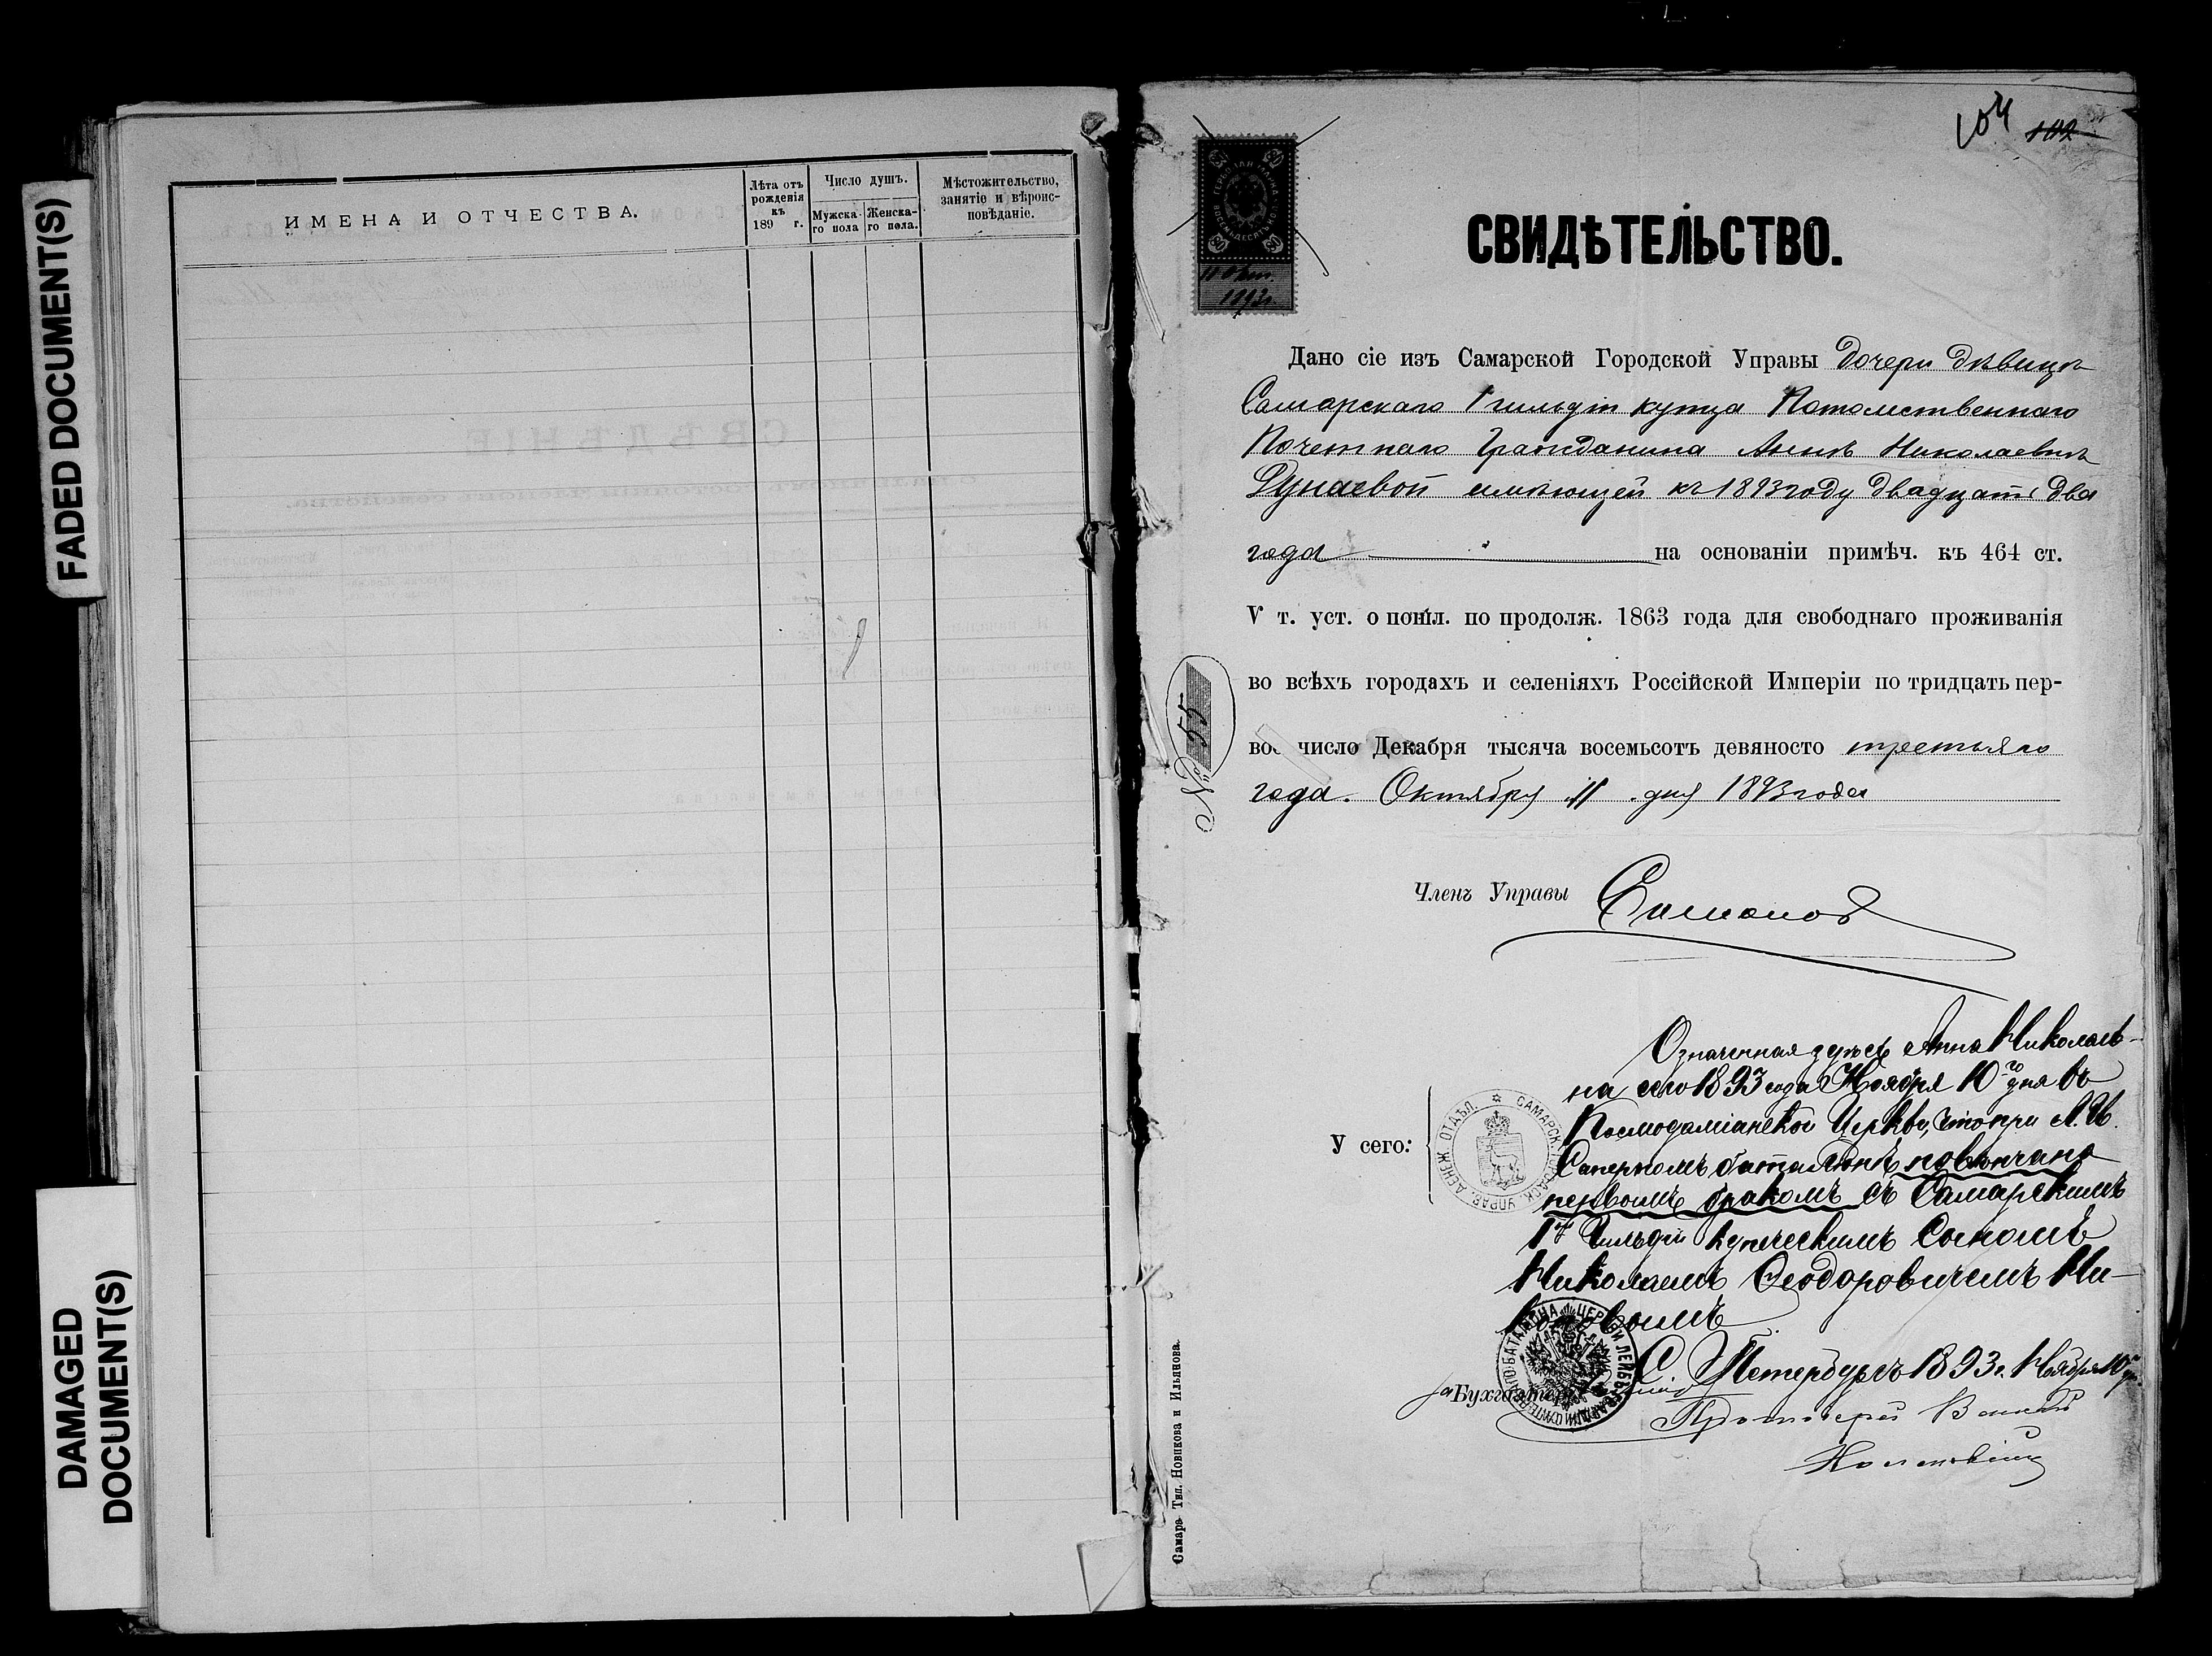 FADED DOCUMENT(S)
DAMAGED
DOCUMENT(S)
ИМЕНА И ОТЧЕСТВА.
Лѣта отъ
рожденія
къ
189 г.
Число душъ.
Мужска-
го пола
Женска-
го пола.
Мѣстожительство,
занятіе и вѣроис-
повѣданіе.
104 102
11 Окт.
1893г.
СВИДѢТЕЛЬСТВО.
Дано сіе изъ Самарской Городской Управы дочери дѣвицѣ
Самарскаго 1 гильдіи купца Потомственнаго
Почетнаго Гражданина Аннѣ Николаевнѣ
Дунаевой имѣющей къ 1893 году двадцать два
года на основаніи примѣч. къ 464 ст.
V т. уст. о пошл. по продолж. 1863 года для свободнаго проживанія
во всѣхъ городахъ и селеніяхъ Россійской Имперіи по тридцать пер-
вое число Декабря тысяча восемьсотъ девяносто третьяго
года. Октября 11 дня 1893 года
№ 55
Членъ Управы
Означенная здѣсь Анна Николаев-
на сего 1893 года Ноября 10го дня въ
Космодаміанской Церкви, что при Л. Гв.
Саперномъ баталіонѣ повѣнчана
первымъ бракомъ съ Самарскимъ
1й Гильдіи купеческимъ сыномъ
Николаемъ Ѳеодоровичемъ Ни-
У сего:
САМАРСК. ГОРОДСК. УПРАВ. ДЕНЕЖ. ОТДѢЛ.
С Петербургъ 1893г. Ноября 10
Бухгалтеръ
Протоіерей
Самара Тип. Новикова и Ильянова.